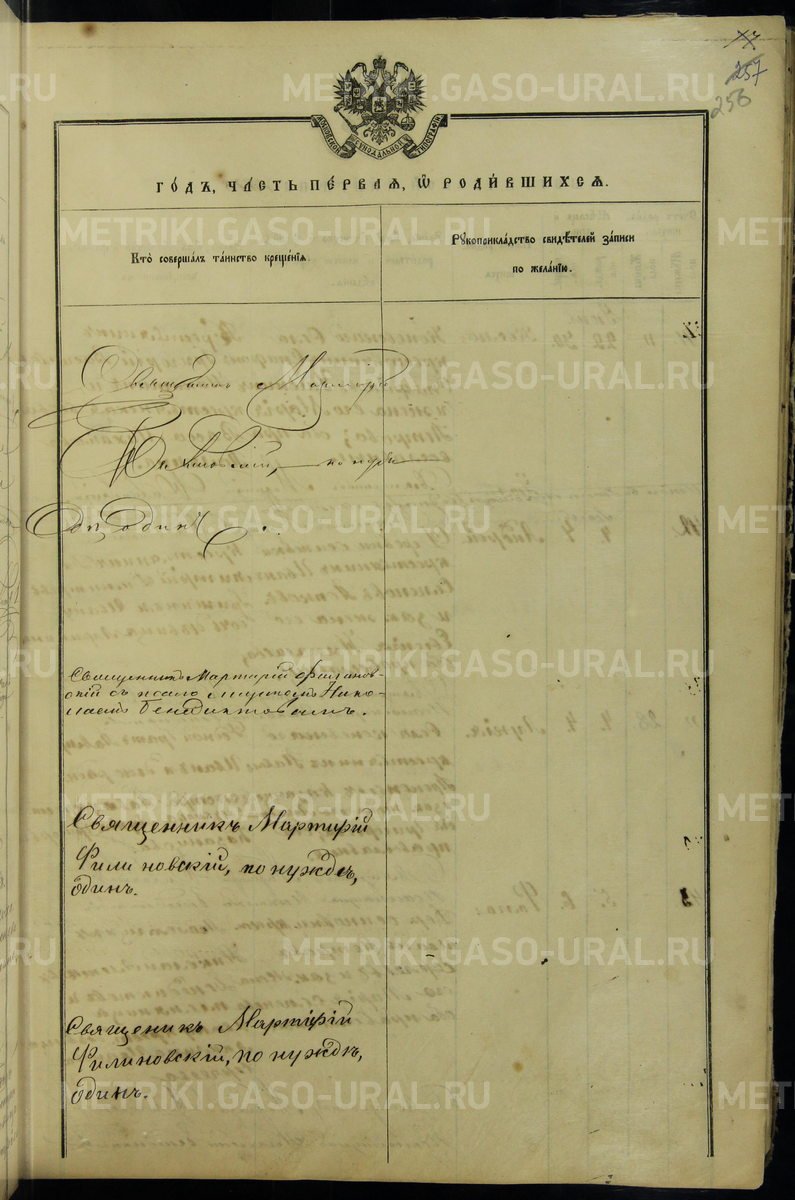 257
256
МОСКОВСКОЙ СѴНОДАЛЬНОЙ ТИПОГРАФІИ
ГО́ДЪ, ЧА́СТЬ ПЕ́РВАѦ, Ѽ РОДИ́ВШИХСѦ.
Кто̀ соверша́лъ та́инство креще́нїѧ.
Рꙋкоприкла́дство свидѣ́телей за́писи
по жела́нїю.
Священникъ Мартирій
Филиновскій, по нуждѣ
одинъ.
Священникъ Мартирій Филинов-
скій съ псаломщикомъ Нико-
лаемъ Бенедиктовымъ.
Священникъ Мартирій
Филиновскій, по нуждѣ,
одинъ.
Священикъ Мартирій
Филиновскій, по нуждѣ,
одинъ.
METRIKI.GASO-URAL.RU